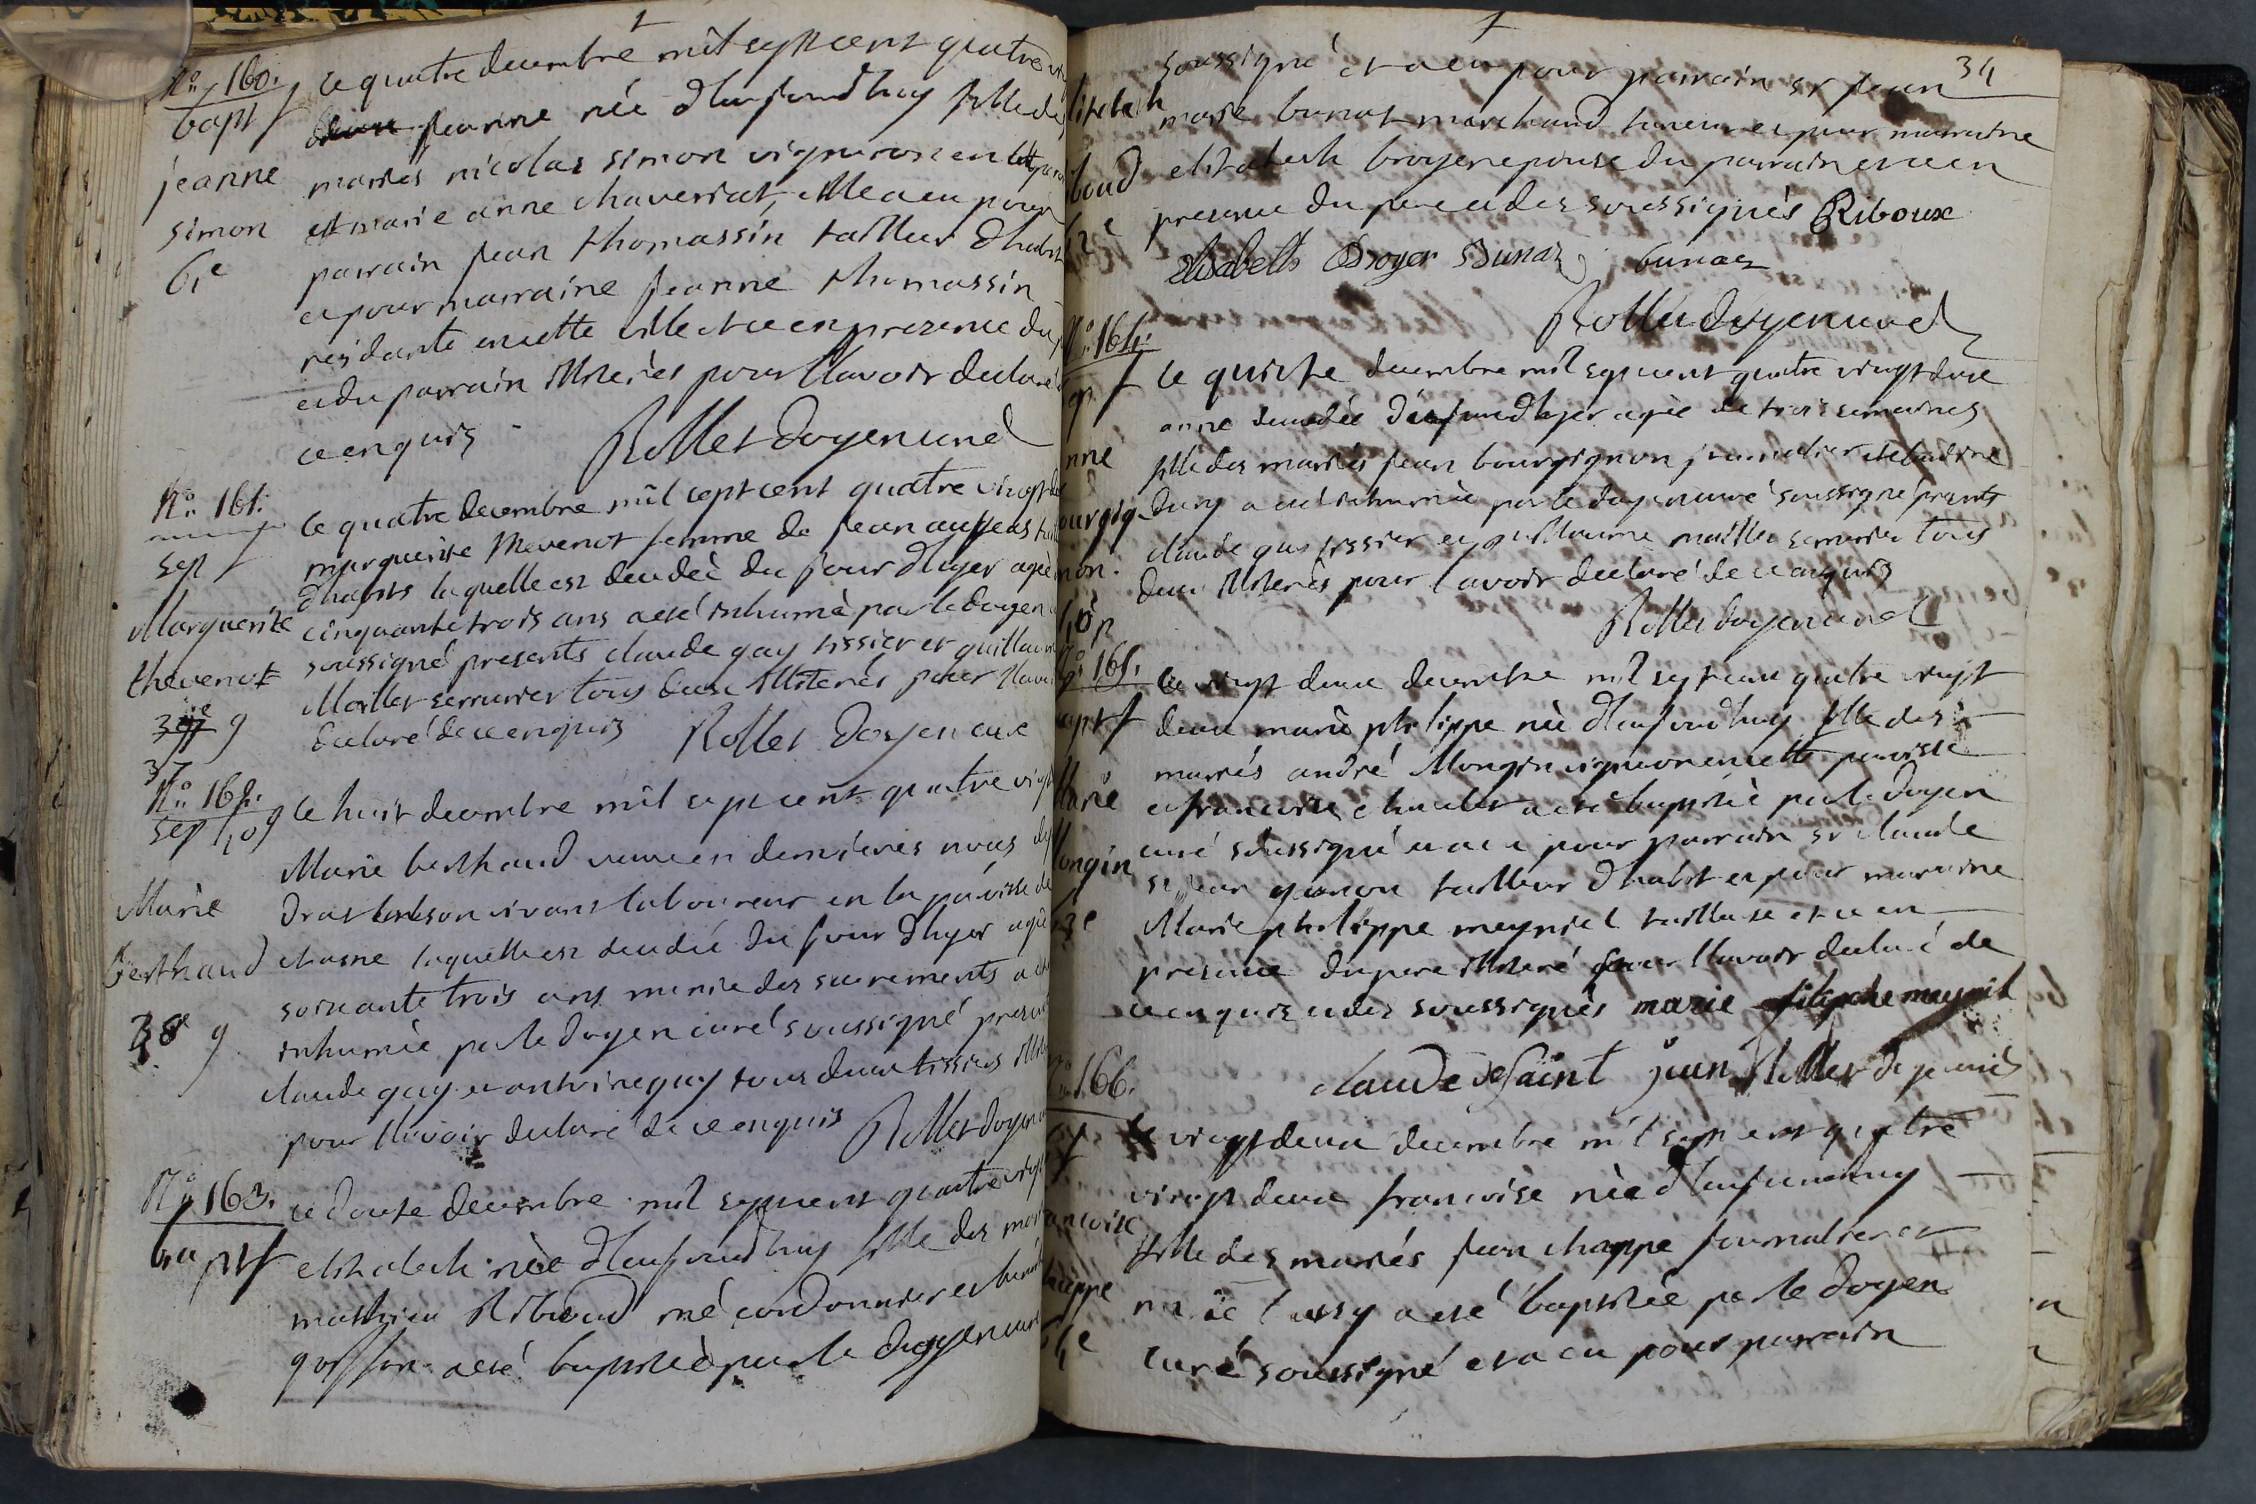 N° 160.
bapt f
jeanne
simon
61e
Le quatre decembre mil sept cent quatre
jeanne née d'haujourdhuy fille des
mariés nicolas simon vigneron en cette
et marie anne chaveriat, elle a eu pour
parrain jean thomassin tailleur d'habit
et pour marraine jeanne thomassin
residante en cette ville et ce en presence du
et du parrain illiterés pour l'avoir declaré
ce enquis
Rollet doyen curé
N° 161.
sep f
Marguerite
thevenot
39 g
37
le quatre decembre mil sept cent quatre vingt
marguerite thevenot femme de jean
d'habits laquelle est deceddée du jour d'hyer agée
cinquante trois ans a eté inhumée par le doyen
soussigné presents claude gay tissier et guillaume
Maillet serrurier tous deux illiterés pour l'avoir
declaré de ce enquis
Rollet doyen curé
N° 162.
sep
Marie
berthaud
38 g
le huit decembre mil sept cent quatre vingt
Marie berthaud veuve en dernieres noces
vivant laboureur en la paroisse de
chasne laquelle est deceddée du jour d'hyer agée
soixante trois ans munie des sacrements a
inhumée par le doyen curé soussigné presents
claude gay et antoine gay tous deux tissiers
pour l'avoir declaré de ce enquis
Rollet doyen
N° 163.
bapt f
le douze decembre mil sept cent quatre vingt
elizabeth née d'haujourdhuy fille des
mathieu Riboud me cordonnier et
a eté baptisée par le doyen curé
34
soussigné et a eu pour parrain sr jean
marie bunat marchand et pour marraine
elizabeth broyer epouse du parrain et ce en
presence du pere et des soussignés Riboux
Elisabeth Broyer Bunaz bunaz
Rollet doyen curé
N° 164.
le quinze decembre mil sept cent quatre vingt deux
anne deceddée d'haujourdhyer agée de trois semaines
fille des mariés jean bourgignon journalier et claudine
dury a eté inhumée par le doyen curé soussigné presents
claude gay tissier et guillaume maillet serrurier tous
deux illiterés pour l'avoir declaré de ce enquis
Rollet doyen curé
N° 165.
le vingt deux decembre mil sept cent quatre vingt
deux marie philippe née d'haujourdhuy fille des
mariés andré Mongin vigneron en cette paroisse
et francoise a eté baptisée par le doyen
curé soussigné et a eu pour parrain sr claude
st jean garçon tailleur d'habit et pour marraine
Marie philippe meyniel tailleuse et ce en
presence du pere illiteré pour l'avoir declaré de
ce enquis et des soussignés marie filiphe meyniel
claude de Saint jean Rollet doyen curé
N° 166.
le vingt deux decembre mil sept cent quatre
vingt deux francoise née d'haujourdhuy
fille des mariés jean chappe journalier et
marie bussy a eté baptisée par le doyen
curé soussigné et a eu pour parrain